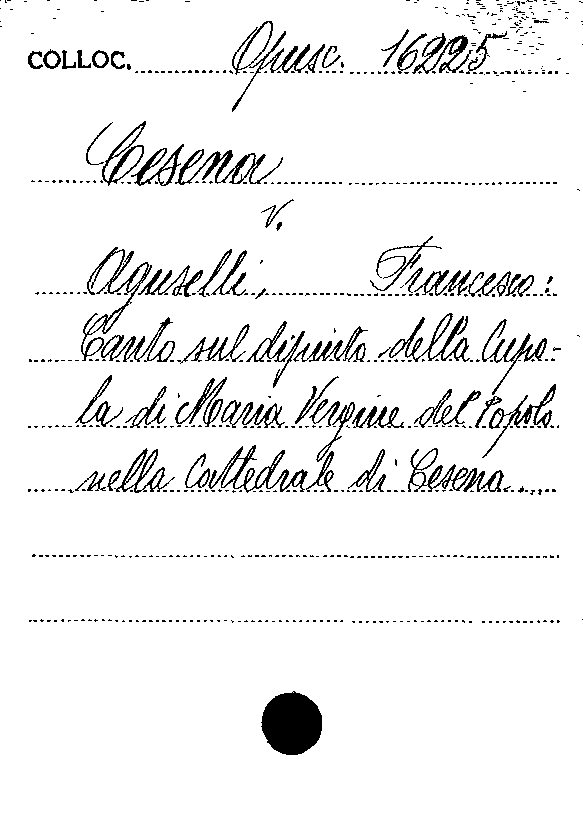 COLLOC. Opusc. 16225
Cesena
v.
Aguselli, Francesco:
Canto sul dipinto della Cupo-
la di Maria Vergine del Popolo
nella Cattedrale di Cesena...